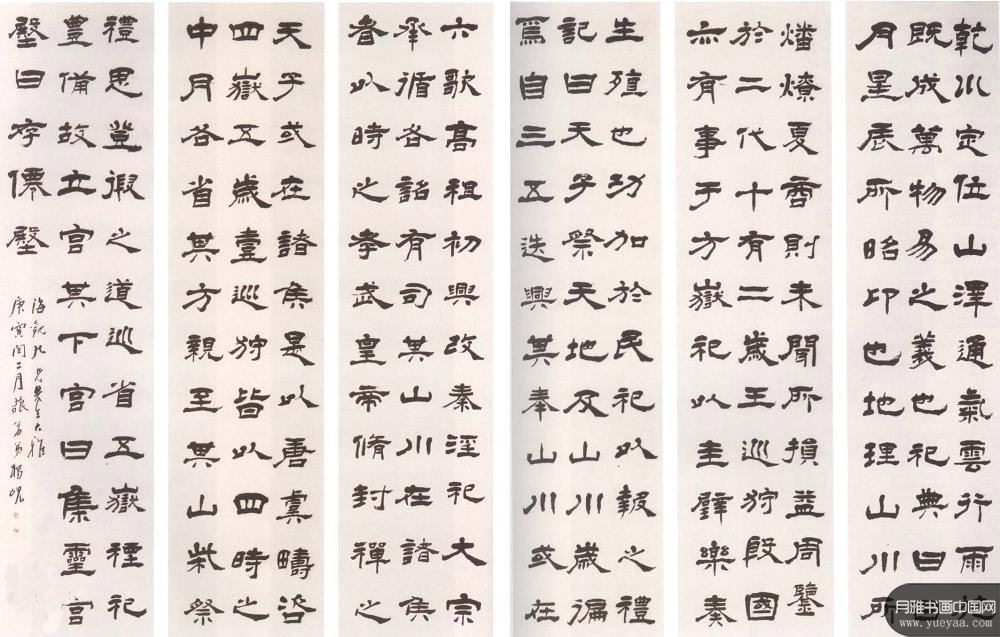 乾川定位山澤通氣雲行雨
既成萬物易之義也祀典曰日
月星辰所昭卬也地理山川所
燔燎夏商則未聞所損益周鑒
於二代十有二歲王巡狩殷國
亦有事于方嶽祀以圭璧樂奏
生殖也功加於民祀以報之禮
記曰天子祭天地及山川歲徧
焉自三五迭興其奉山川或在
六歌高祖初興改秦淫祀大宗
承循各詔有司其山川在諸侯
者以時之孝武皇帝脩封禪之
天子或在諸侯是以唐虞疇咨
四嶽五歲壹巡狩皆以四時之
中月各省其方親至其山柴祭
禮思登徦之道巡省五嶽禋祀
豊備故立宮其下宮曰集靈宮
壂曰存僊壂
海觀九兄先生大雅
庚寅閏二月藐翁弟楊峴
月雅书画中国网
www.yueyaa.com